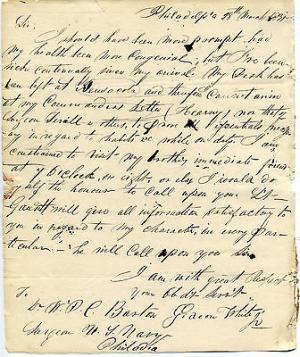 Philadelpa 28th March 1831
Sir.
I should have been more prompt had
my health been more congenial, but I've been
sick continually since my arrival. My Desk has
been left at Pensacola and therefore cannot
at my Commanders letter, (Henry) nor that of
Surgeon Terrill & others, to prove
in regard to habits &c while on duty. I am
constrained to visit my brothers immediate
at 7 O'clock, on or else I would do
myself the honour to call upon you. Dr
Gantt will give all information satisfactory to
you in regard to my character, in every par-
ticular. he will call upon you Sir
I am with great Respect
Your Obdt. Servt.
To Deacon White Jr
Dr. W. P. C. Barton
Surgeon U. S. Navy
Philada